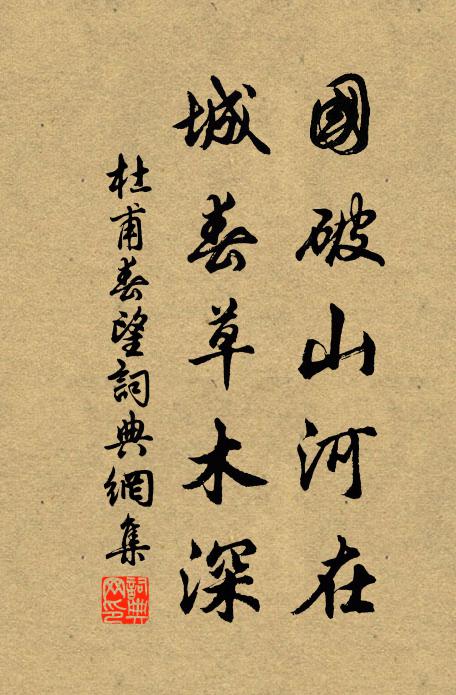 國破山河在
城春草木深
杜甫春望詞典網集
詞典網印